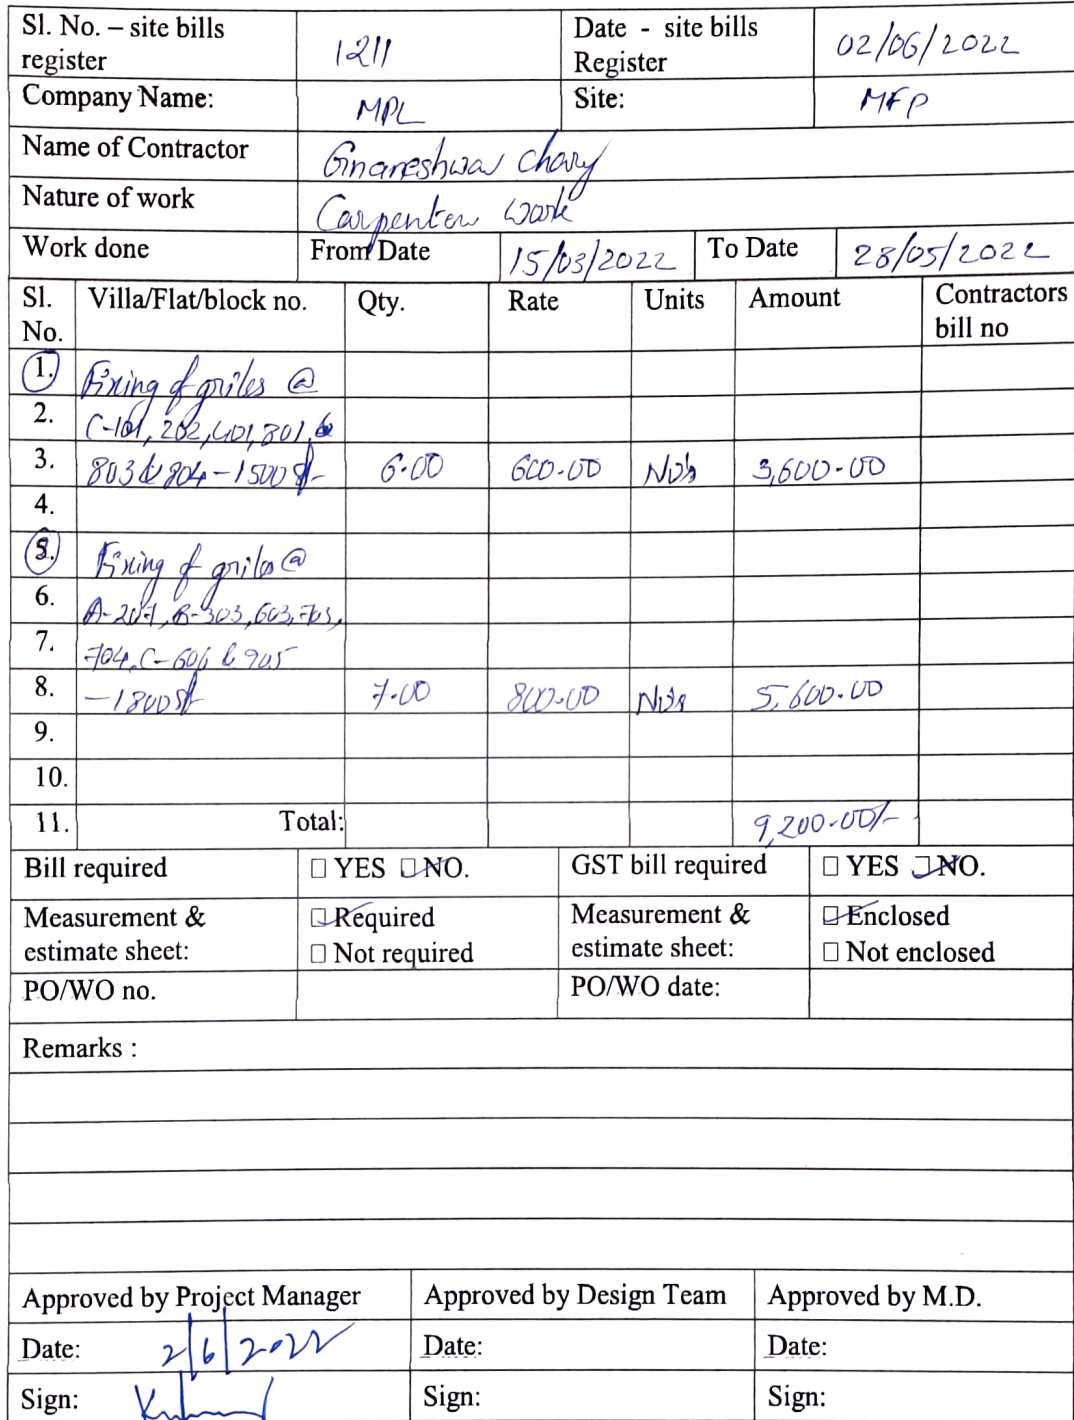 Sl. No. – site bills register 1211 Date - site bills Register 02/06/2022
Company Name: MPL Site: MFP
Name of Contractor Gnaneshwar Chary
Nature of work Carpenter work
Work done From Date 15/03/2022 To Date 28/05/2022
Sl. No. Villa/Flat/block no. Qty. Rate Units Amount Contractors bill no
1. Fixing of griles @
2. C-101, 202, 401, 801,
3. 803 & 804 - 1500 sft 6.00 600.00 No's 3,600.00
4.
5. Fixing of griles @
6. A-207, B-303, 603, 703,
7. 704, C-606 & 905
8. - 1800 sft 7.00 800.00 No's 5,600.00
9.
10.
11. Total: 9,200.00/-
Bill required YES NO. GST bill required YES NO.
Measurement & estimate sheet: Required Measurement & estimate sheet: Enclosed
Not required Not enclosed
PO/WO no. PO/WO date:
Remarks :
Approved by Project Manager Approved by Design Team Approved by M.D.
Date: 2/6/2022 Date: Date:
Sign: Sign: Sign: